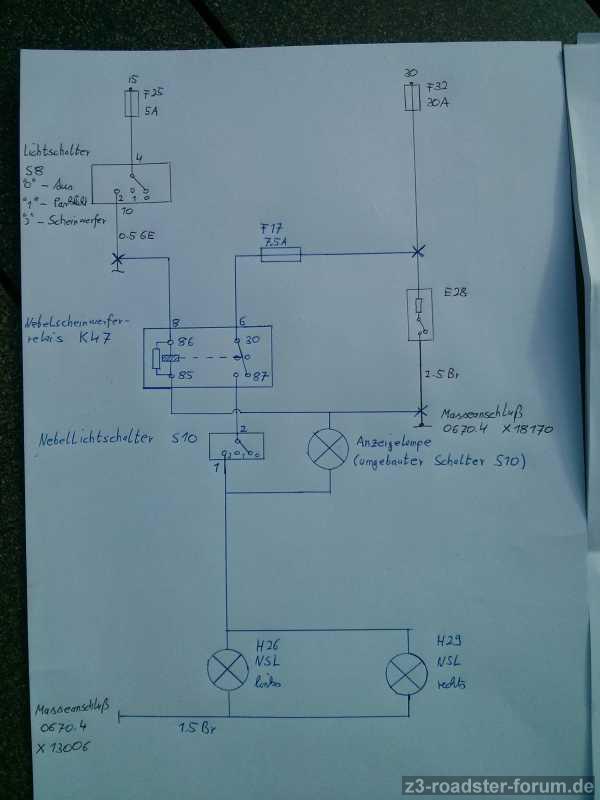 15
F25
5A
30
F32
30A
Lichtschalter
S8
"0" - Aus
"1" - Parklicht
- Scheinwerfer
4
2 1
10
0.5 GE
F17
7.5A
E28
Nebelscheinwerfer-
relais K47
8
6
86
30
85
87
2.5 Br
Masseanschluß
0670.4 X18170
Nebellichtschalter S10
2
1
Anzeigelampe
(umgebauter Schalter S10)
H26
NSL
links
H29
NSL
rechts
Masseanschluß
0670.4
X13006
1.5 Br
z3-roadster-forum.de